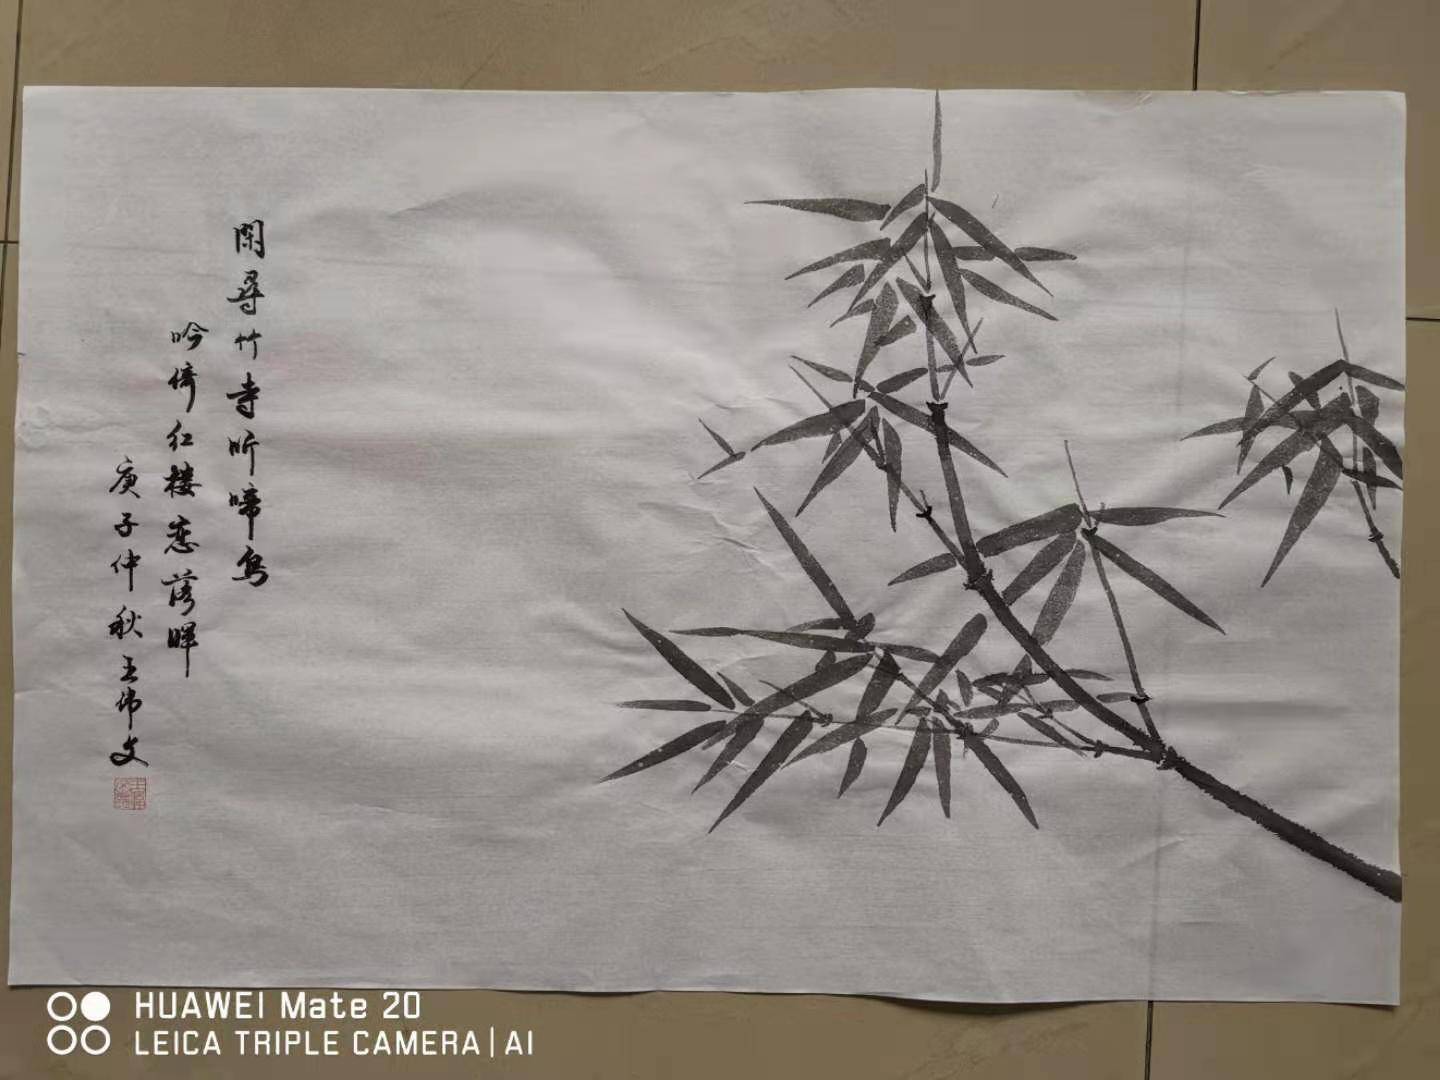 閑尋竹寺听啼鸟
吟倚红楼恋落晖
庚子仲秋王伟文
HUAWEI Mate 20
LEICA TRIPLE CAMERA|AI